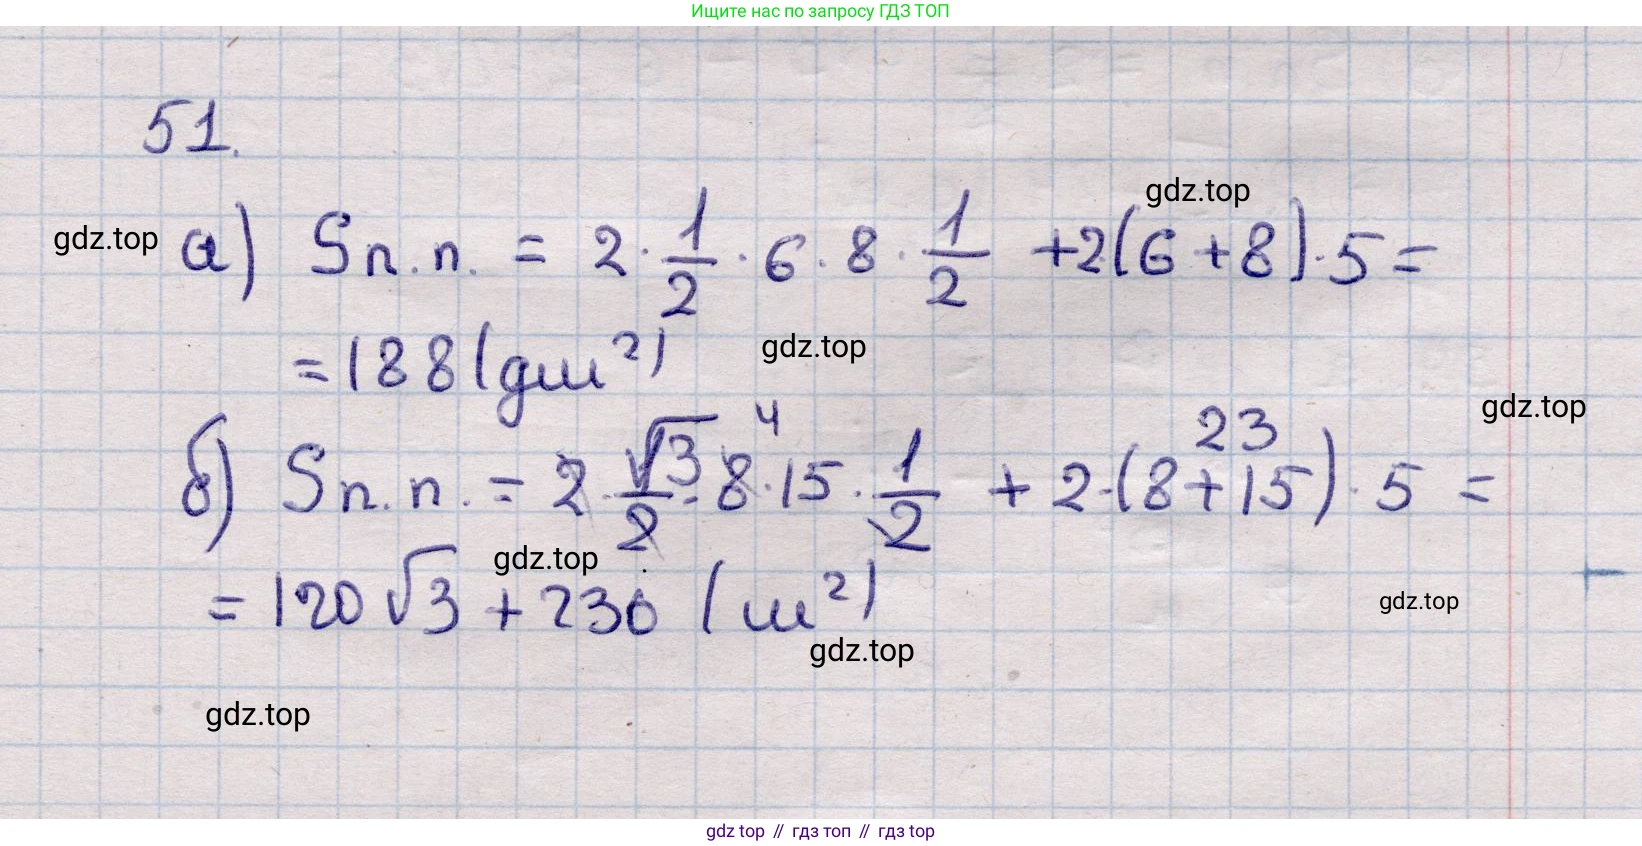 Ищите нас по запросу ГДЗ ТОП
51.
gdz.top
gdz.top а) Sп.п. = 2 · 1/2 · 6 · 8 · 1/2 + 2(6 + 8) · 5 =
= 188 (дм²)
gdz.top
gdz.top
б) Sп.п. = 2 · √3/2 · 8 4 · 15 · 1/2 + 2 · (8 + 15) 23 · 5 =
gdz.top
= 120√3 + 230 (м²)
gdz.top
gdz.top
gdz.top
gdz top // гдз топ // гдз top